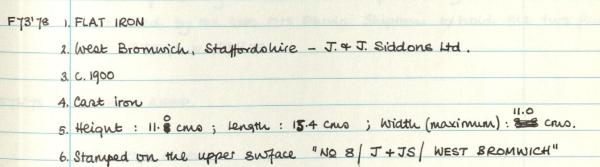 F73'78 1. FLAT IRON
2. West Bromwich, Staffordshire - J. & J. Siddons Ltd.
3. C. 1900
4. Cast iron
5. Height : 11.0 cms ; Length : 15.4 cms ; Width (maximum) : 11.0 cms.
6. Stamped on the upper surface "NO 8/ J+JS/ WEST BROMWICH"